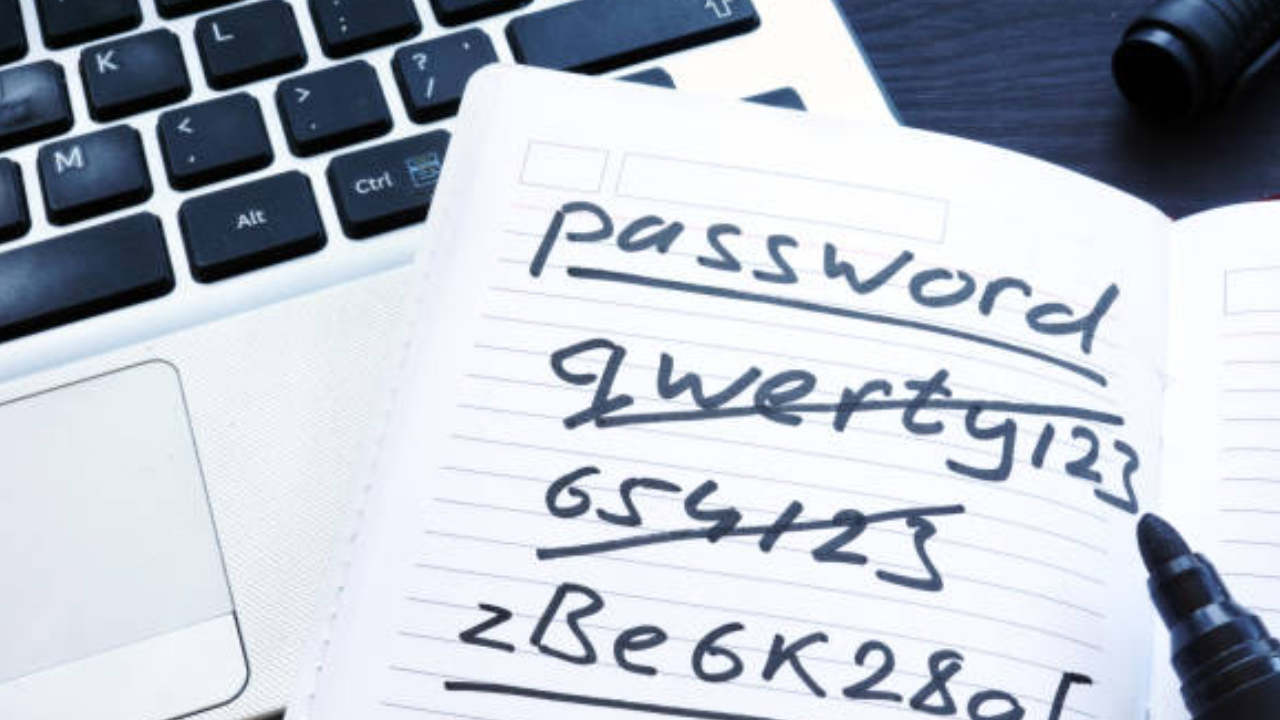 K L : ;
M < , > . ? / '
Alt Ctrl
password
qwerty123
654123
zBe6K28